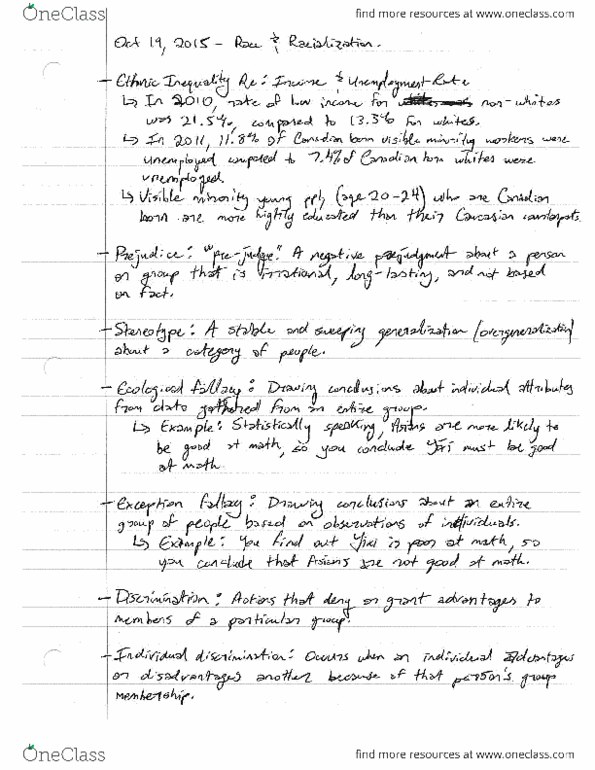 OneClass
find more resources at www.oneclass.com
Oct 19, 2015 - Race & Racialization.
- Ethnic Inequality Re: Income & Unemployment Rate
↳ In 2010, rate of low income for non-whites
was 21.5%, compared to 13.3% for whites.
↳ In 2011, 11.8% of Canadian born visible minority workers were
unemployed compared to 7.4% of Canadian born whites were
unemployed.
↳ Visible minority young ppl (age 20-24) who are Canadian
born are more highly educated than their Caucasian counterparts.
- Prejudice: "pre-judge". A negative prejudgment about a person
or group that is irrational, long-lasting, and not based
on fact.
- Stereotype: A stable and sweeping generalization (overgeneralization)
about a category of people.
- Ecological fallacy: Drawing conclusions about individual attributes
from data gathered from an entire group.
↳ Example: Statistically speaking, Asians are more likely to
be good at math, so you conclude Yixi must be good
at math.
- Exception fallacy: Drawing conclusions about an entire
group of people based on observations of individuals.
↳ Example: You find out Yixi is poor at math, so
you conclude that Asians are not good at math.
- Discrimination: Actions that deny or grant advantages to
members of a particular group.
- Individual discrimination: Occurs when an individual advantages
or disadvantages another because of that person's group
membership.
OneClass
find more resources at www.oneclass.com